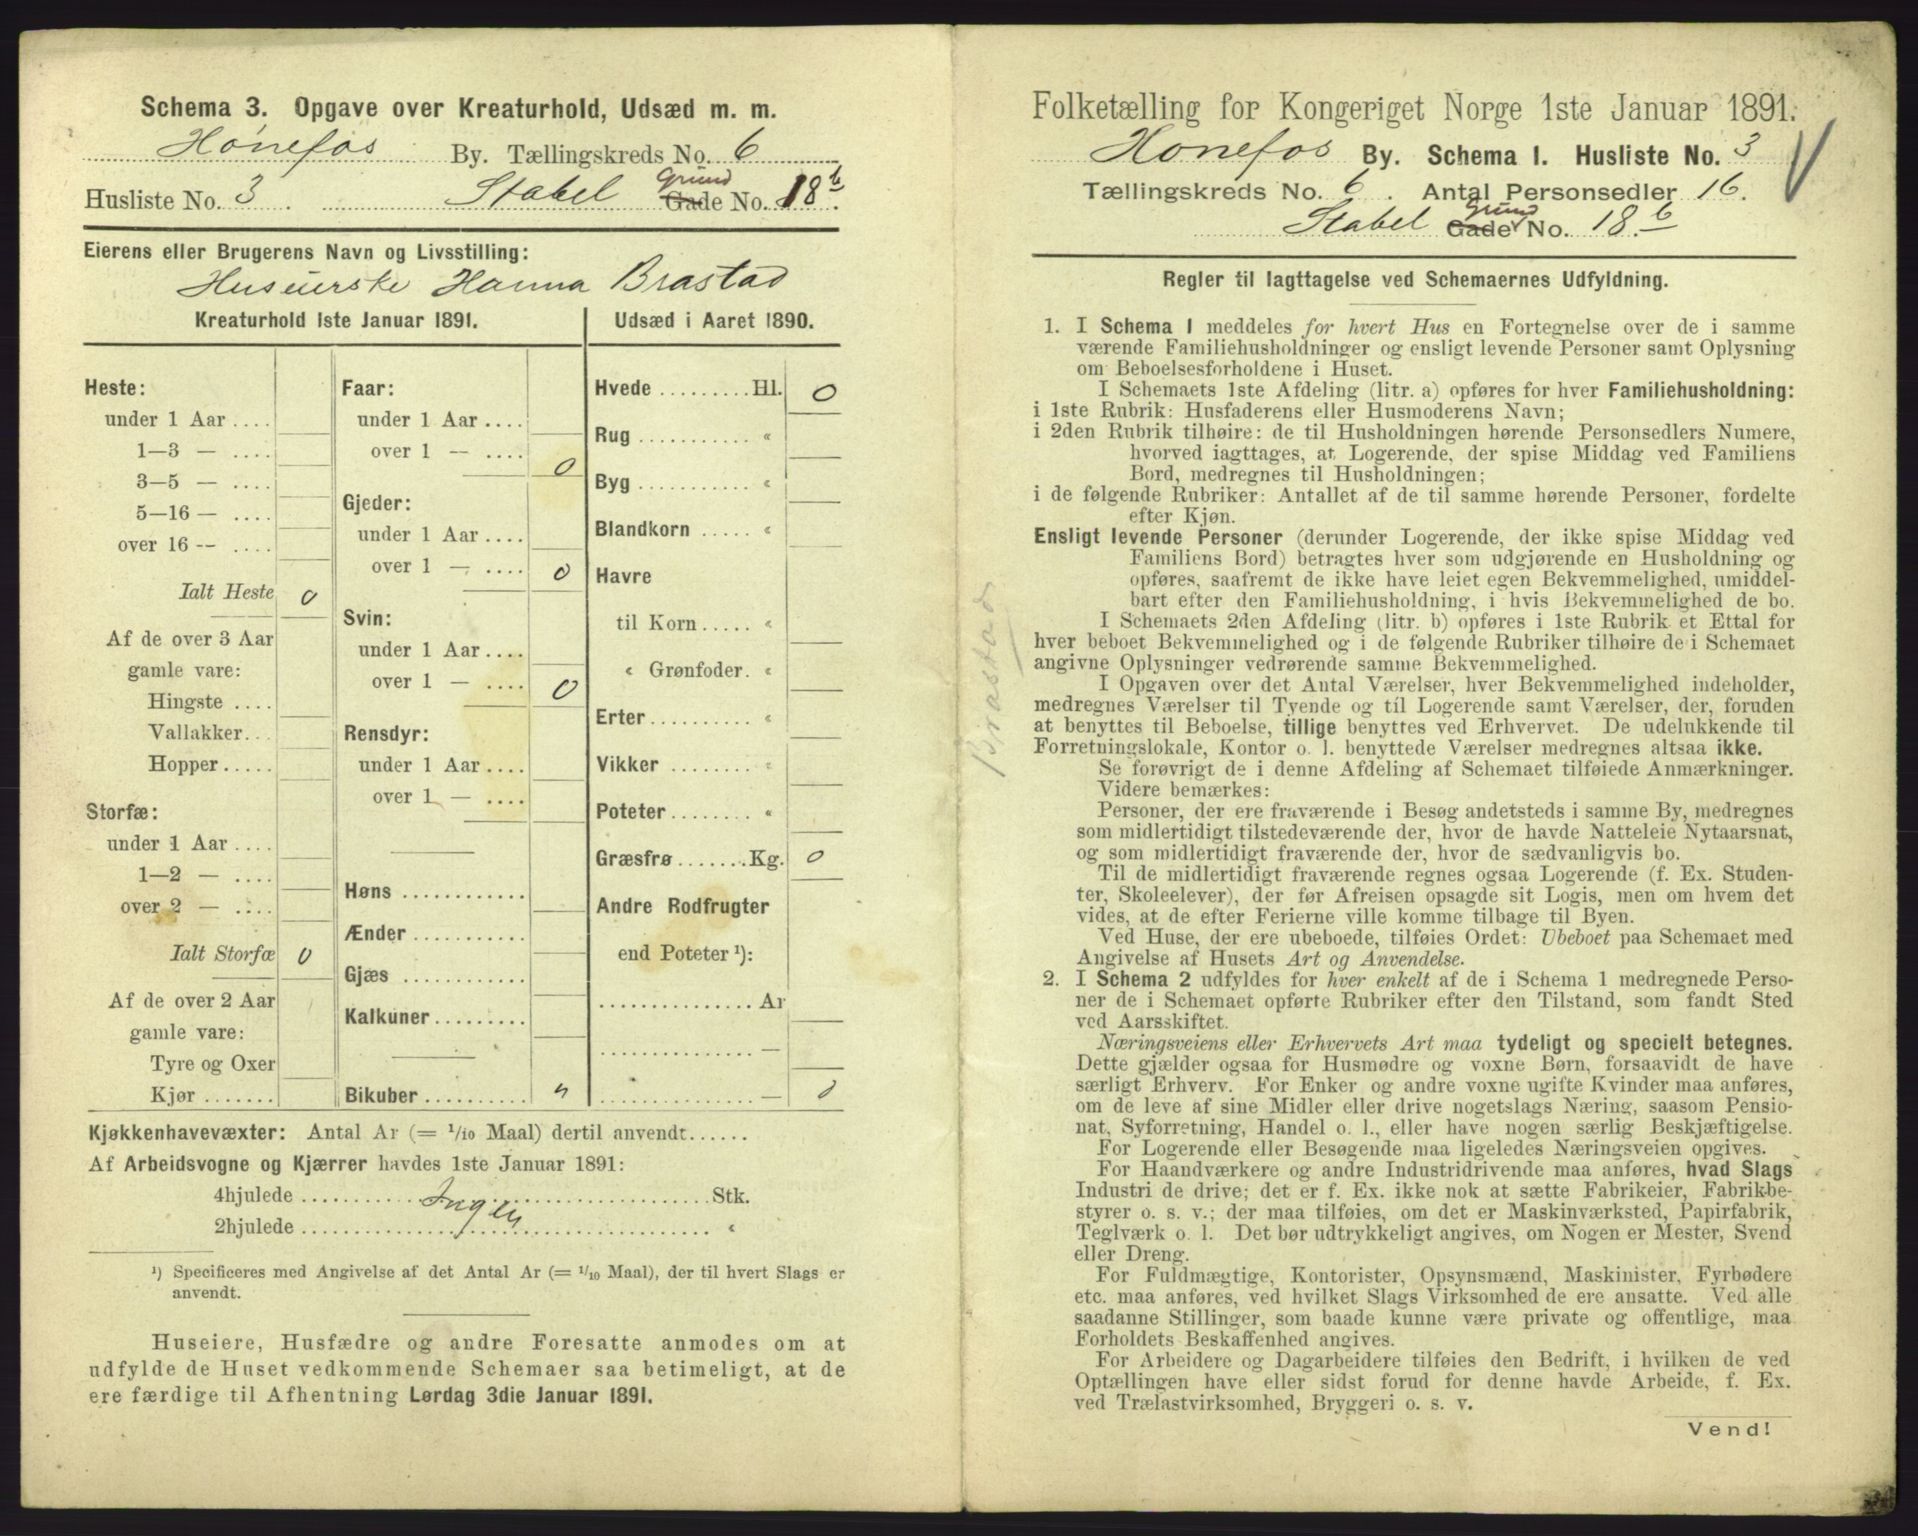 Schema 3. Opgave over Kreaturhold, Udsæd m. m.
Hønefos By. Tællingskreds No. 6
Grund
Husliste No. 3. Stabel Gade No. 18 b.
Eierens eller Brugerens Navn og Livsstilling:
Huseierske Hanna Brastad
Kreaturhold 1ste Januar 1891.
Heste:
under 1 Aar ....
1—3 — ....
3—5 — ....
5—16 — ....
over 16 -- ....
Ialt Heste 0
Af de over 3 Aar
gamle vare:
Hingste ....
Vallakker...
Hopper.....
Storfæ:
under 1 Aar ....
1—2 — ....
over 2 — ....
Ialt Storfæ 0
Af de over 2 Aar
gamle vare:
Tyre og Oxer
Kjør .......
Faar:
under 1 Aar ....
over 1 — ....
0
Gjeder:
under 1 Aar ....
over 1 — .... 0
Svin:
under 1 Aar ....
over 1 — .... 0
Rensdyr:
under 1 Aar ....
over 1 — ....
Høns ............
Ænder ...........
Gjæs ............
Kalkuner.........
Bikuber ..........
Udsæd i Aaret 1890.
Hvede .........Hl. 0
Rug ........... «
Byg ........... «
Blandkorn ..... «
Havre
til Korn..... «
« Grønfoder. «
Erter.......... «
Vikker ........ «
Poteter........ «
Græsfrø.......Kg. 0
Andre Rodfrugter
end Poteter ¹):
...............Ar
............... —
............... — 0
Kjøkkenhavevæxter: Antal Ar (= ¹/₁₀ Maal) dertil anvendt......
Af Arbeidsvogne og Kjærrer havdes 1ste Januar 1891:
4hjulede ........ Ingen ........Stk.
2hjulede ........................ «
¹) Specificeres med Angivelse af det Antal Ar (= ¹/₁₀ Maal), der til hvert Slags er
anvendt.
Huseiere, Husfædre og andre Foresatte anmodes om at
udfylde de Huset vedkommende Schemaer saa betimeligt, at de
ere færdige til Afhentning Lørdag 3die Januar 1891.
Brastad
Folketælling for Kongeriget Norge 1ste Januar 1891.
Hønefos By. Schema 1. Husliste No. 3
Tællingskreds No. 6. Antal Personsedler 16.
Grund
Stabel Gade No. 18. b
Regler til Iagttagelse ved Schemaernes Udfyldning.
1. I Schema 1 meddeles for hvert Hus en Fortegnelse over de i samme
værende Familiehusholdninger og ensligt levende Personer samt Oplysning
om Beboelsesforholdene i Huset.
I Schemaets 1ste Afdeling (litr. a) opføres for hver Familiehusholdning:
i 1ste Rubrik: Husfaderens eller Husmoderens Navn;
i 2den Rubrik tilhøire: de til Husholdningen hørende Personsedlers Numere,
hvorved iagttages, at Logerende, der spise Middag ved Familiens
Bord, medregnes til Husholdningen;
i de følgende Rubriker: Antallet af de til samme hørende Personer, fordelte
efter Kjøn.
Ensligt levende Personer (derunder Logerende, der ikke spise Middag ved
Familiens Bord) betragtes hver som udgjørende en Husholdning og
opføres, saafremt de ikke have leiet egen Bekvemmelighed, umiddel-
bart efter den Familiehusholdning, i hvis Bekvemmelighed de bo.
I Schemaets 2den Afdeling (litr. b) opføres i 1ste Rubrik et Ettal for
hver beboet Bekvemmelighed og i de følgende Rubriker tilhøire de i Schemaet
angivne Oplysninger vedrørende samme Bekvemmelighed.
I Opgaven over det Antal Værelser, hver Bekvemmelighed indeholder,
medregnes Værelser til Tyende og til Logerende samt Værelser, der, foruden
at benyttes til Beboelse, tillige benyttes ved Erhvervet. De udelukkende til
Forretningslokale, Kontor o. l. benyttede Værelser medregnes altsaa ikke.
Se forøvrigt de i denne Afdeling af Schemaet tilføiede Anmærkninger.
Videre bemærkes:
Personer, der ere fraværende i Besøg andetsteds i samme By, medregnes
som midlertidigt tilstedeværende der, hvor de havde Natteleie Nytaarsnat,
og som midlertidigt fraværende der, hvor de sædvanligvis bo.
Til de midlertidigt fraværende regnes ogsaa Logerende (f. Ex. Studen-
ter, Skoleelever), der før Afreisen opsagde sit Logis, men om hvem det
vides, at de efter Ferierne ville komme tilbage til Byen.
Ved Huse, der ere ubeboede, tilføies Ordet: Ubeboet paa Schemaet med
Angivelse af Husets Art og Anvendelse.
2. I Schema 2 udfyldes for hver enkelt af de i Schema 1 medregnede Perso-
ner de i Schemaet opførte Rubriker efter den Tilstand, som fandt Sted
ved Aarsskiftet.
Næringsveiens eller Erhvervets Art maa tydeligt og specielt betegnes.
Dette gjælder ogsaa for Husmødre og voxne Børn, forsaavidt de have
særligt Erhverv. For Enker og andre voxne ugifte Kvinder maa anføres,
om de leve af sine Midler eller drive nogetslags Næring, saasom Pensio-
nat, Syforretning, Handel o. l., eller have nogen særlig Beskjæftigelse.
For Logerende eller Besøgende maa ligeledes Næringsveien opgives.
For Haandværkere og andre Industridrivende maa anføres, hvad Slags
Industri de drive; det er f. Ex. ikke nok at sætte Fabrikeier, Fabrikbe-
styrer o. s. v.; der maa tilføies, om det er Maskinværksted, Papirfabrik,
Teglværk o. l. Det bør udtrykkeligt angives, om Nogen er Mester, Svend
eller Dreng.
For Fuldmægtige, Kontorister, Opsynsmænd, Maskinister, Fyrbødere
etc. maa anføres, ved hvilket Slags Virksomhed de ere ansatte. Ved alle
saadanne Stillinger, som baade kunne være private og offentlige, maa
Forholdets Beskaffenhed angives.
For Arbeidere og Dagarbeidere tilføies den Bedrift, i hvilken de ved
Optællingen have eller sidst forud for denne havde Arbeide, f. Ex.
ved Trælastvirksomhed, Bryggeri o. s. v.
Vend!